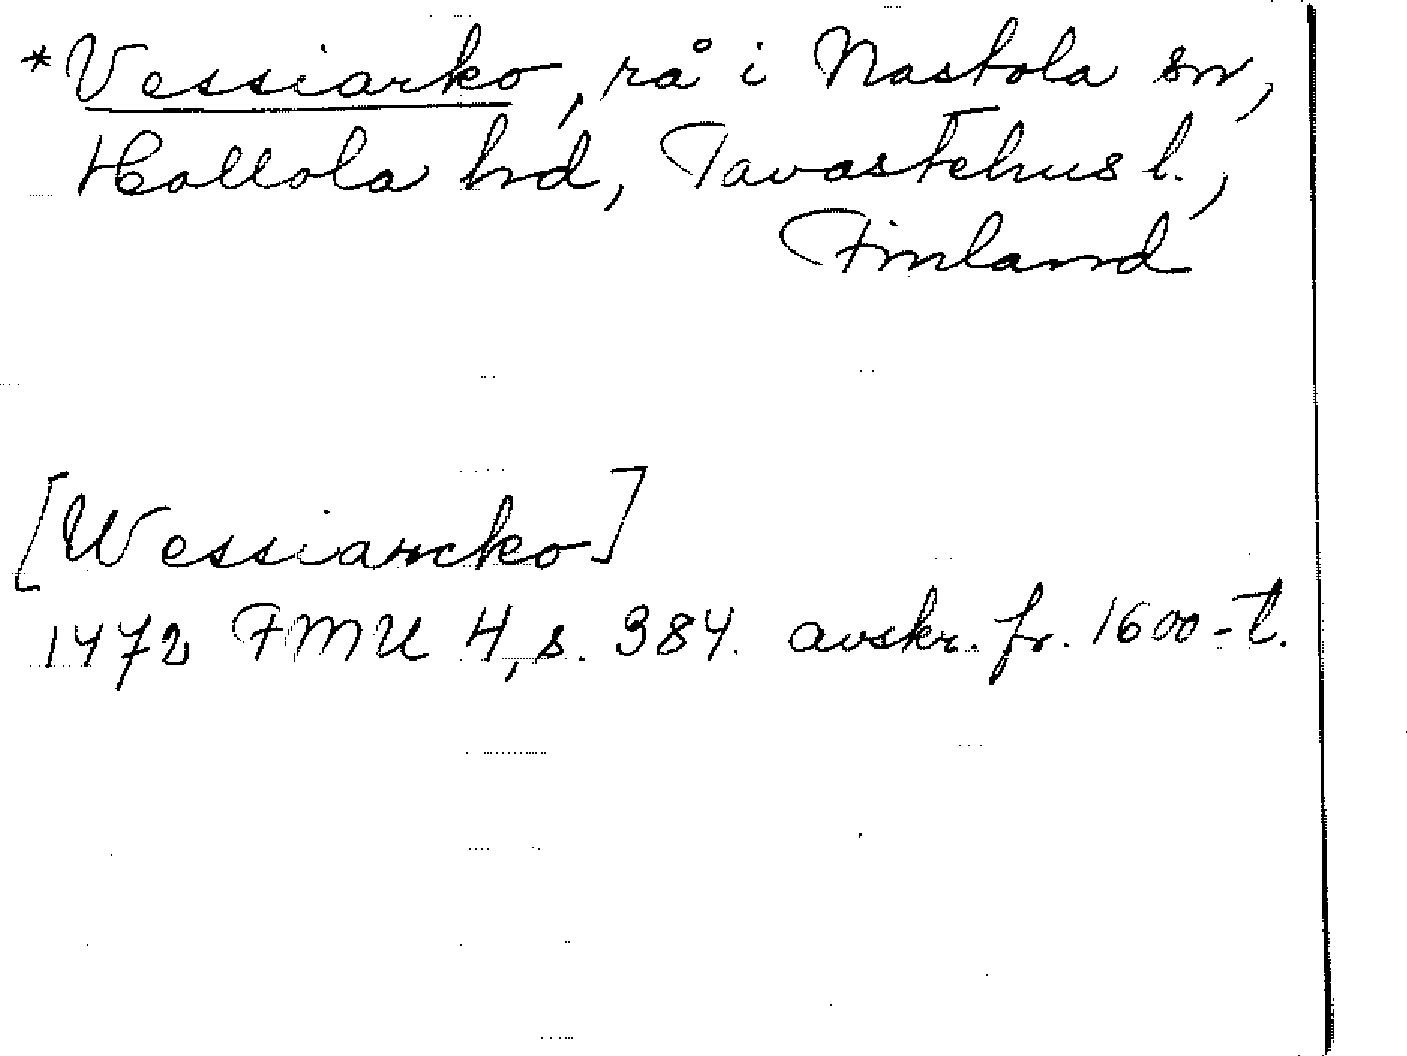 *Vessiarko, rå i Nastola sn,
Hollola hrd, Tavastehus l.,
Finland
[Wessiarcko]
1472 FMU 4, s. 384. avskr. fr. 1600-t.